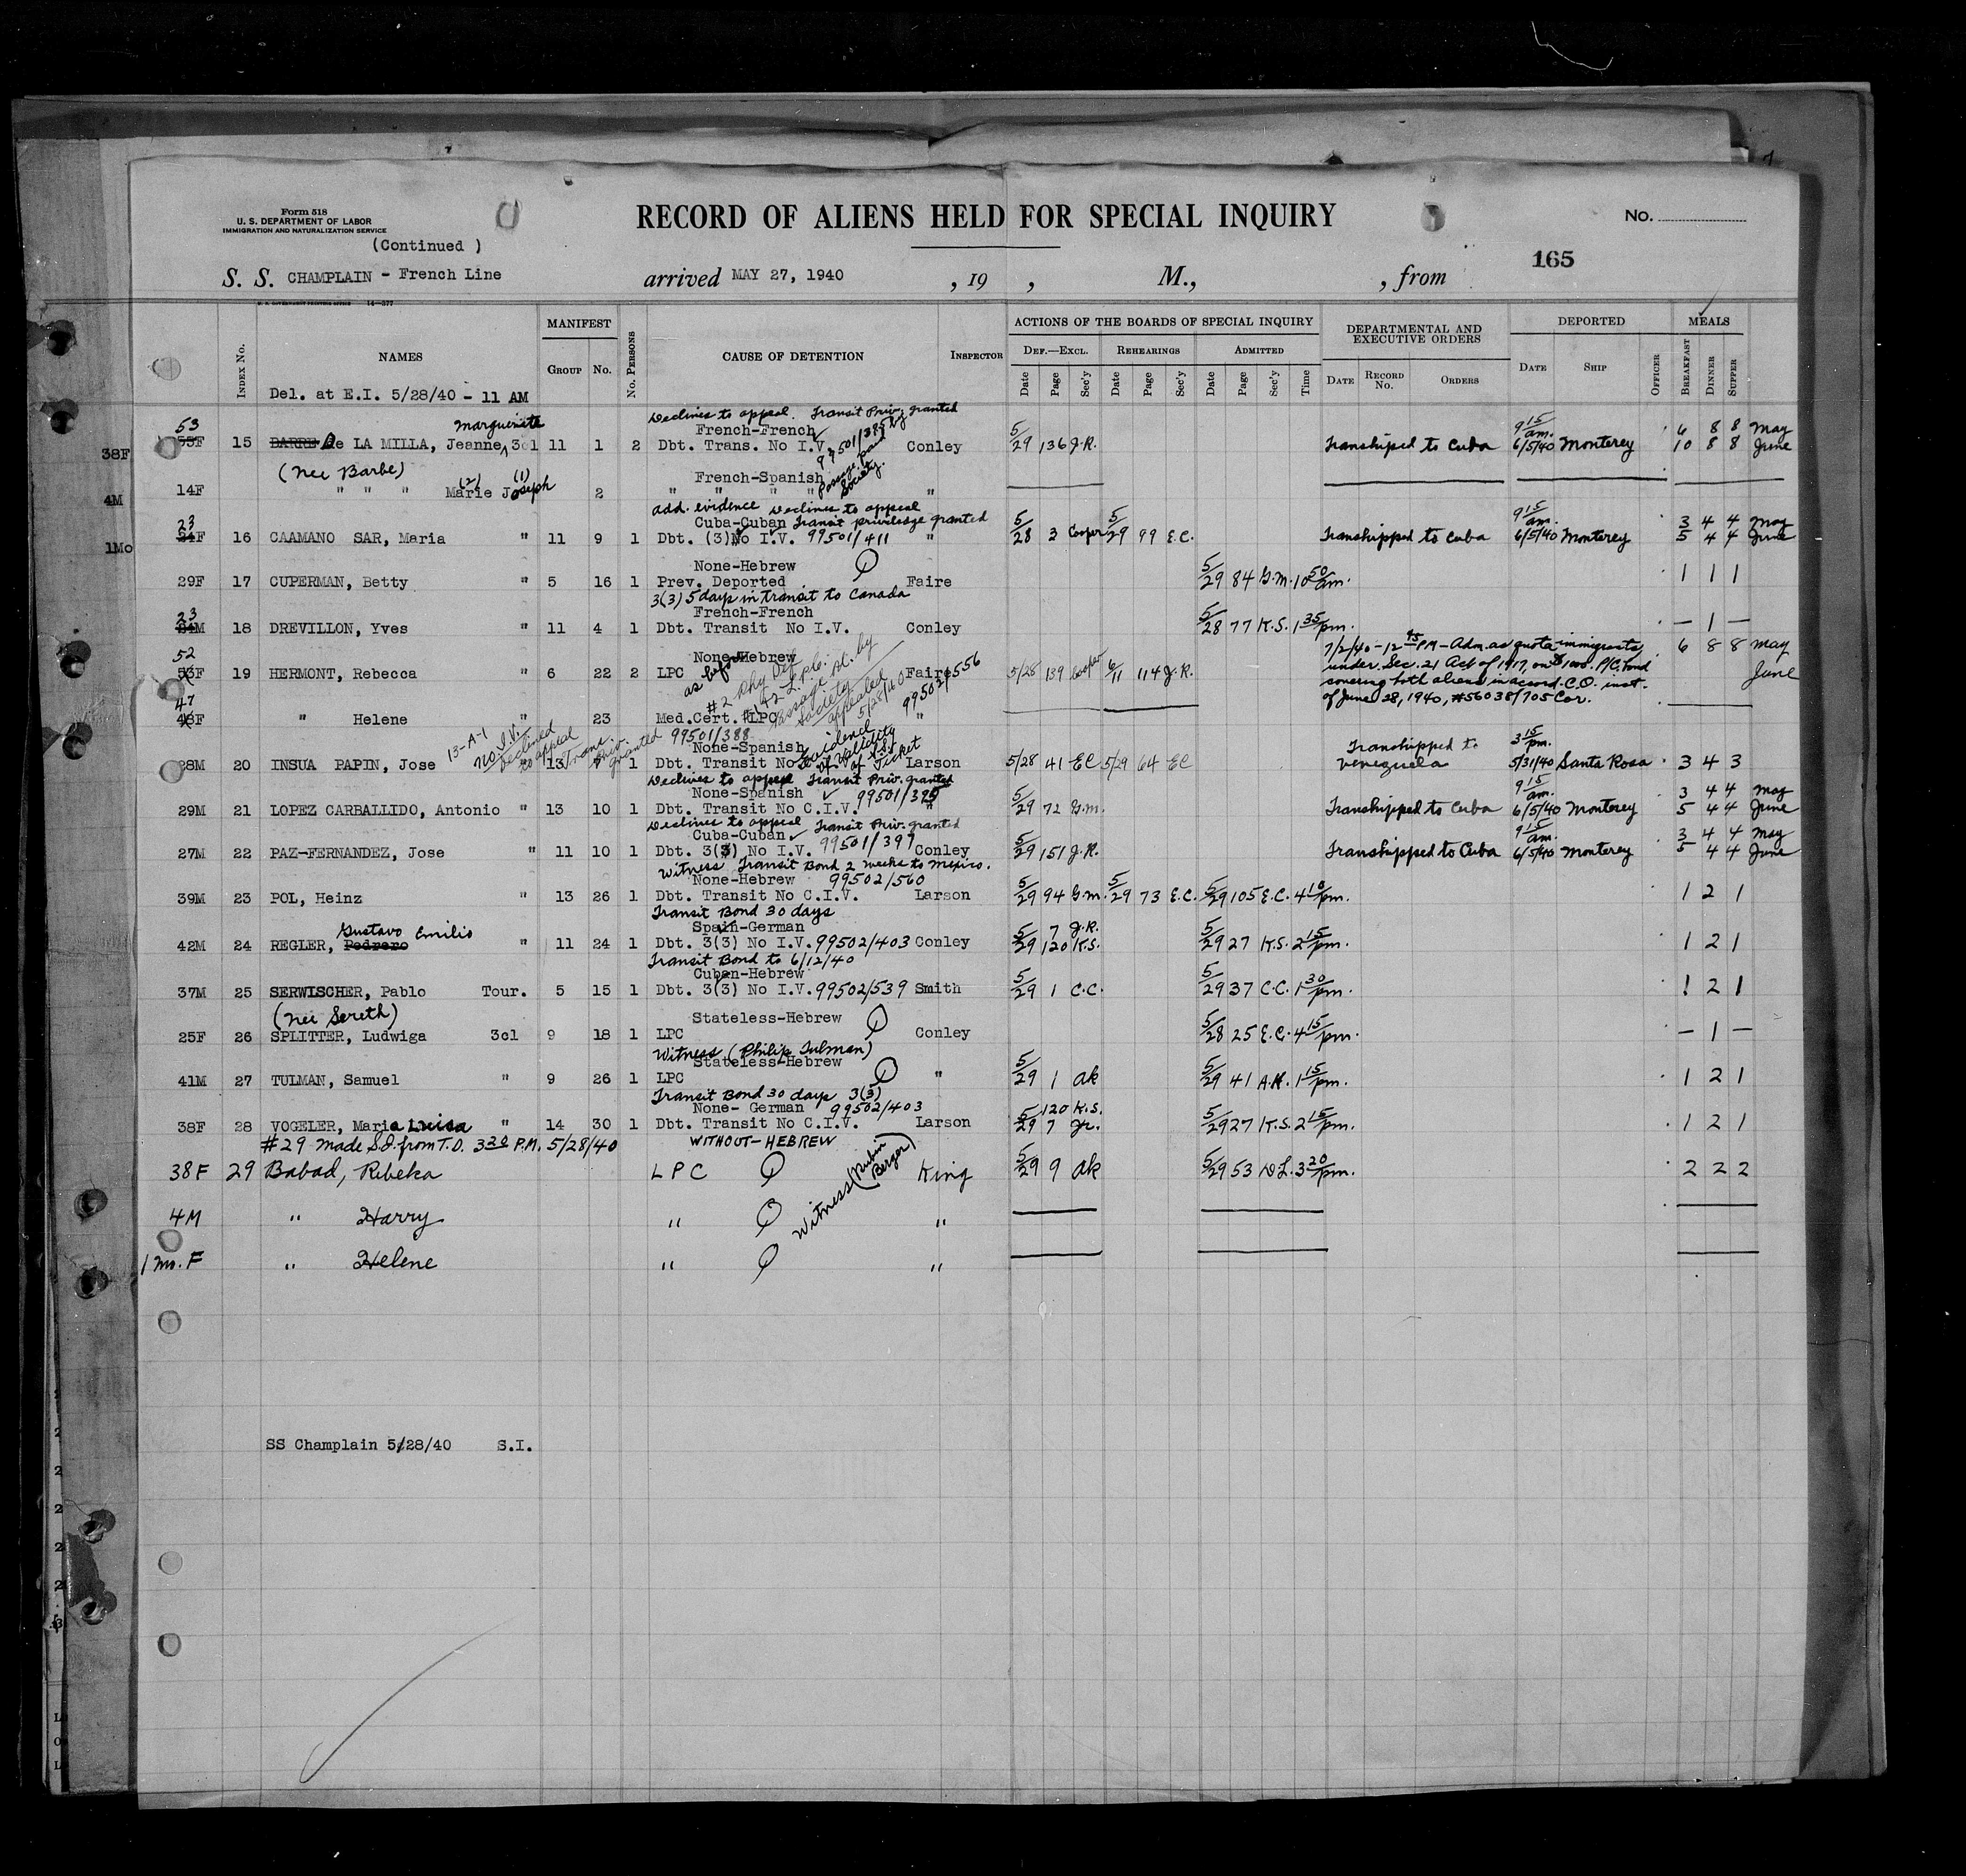 Form 518
U. S. DEPARTMENT OF LABOR
IMMIGRATION AND NATURALIZATION SERVICE
(Continued )
RECORD OF ALIENS HELD FOR SPECIAL INQUIRY
No.
165
S. S. CHAMPLAIN - French Line arrived MAY 27, 1940 , 19 , M., , from
14—377
Index No.
NAMES
Del. at E.I. 5/28/40 - 11 AM
MANIFEST
Group No.
No. Persons
CAUSE OF DETENTION
Inspector
ACTIONS OF THE BOARDS OF SPECIAL INQUIRY
Def.—Excl. Rehearings Admitted
Date Page Sec'y Date Page Sec'y Date Page Sec'y Time
DEPARTMENTAL AND EXECUTIVE ORDERS
Date Record No. Orders
DEPORTED
Date Ship Officer
MEALS
Breakfast Dinner Supper
Marguerite Declines to appeal. Transit Priv. granted
53 French-French 9 15 am. 6 8 8 May
55F 15 BARRE De LA MILLA, Jeanne, 3cl 11 1 2 Dbt. Trans. No I.V. Conley 5/29 136 J.R. Transhipped to Cuba 6/5/40 Monterey 10 8 8 June
38F
(nee Barbe) Passage paid Society.
(2) (1) French-Spanish
14F " " " Marie Joseph 2 " " " " "
4M
add. evidence Declines to appeal
23 Cuba-Cuban Transit privilege granted 9 15 am. 3 4 4 May
24F 16 CAAMANO SAR, Maria " 11 9 1 Dbt. (3) No I.V. 99501/411 " 5/28 3 Cooper 5/29 99 E.C. Transhipped to Cuba 6/5/40 Monterey 5 4 4 June
1Mo
None-Hebrew
29F 17 CUPERMAN, Betty " 5 16 1 Prev. Deported Faire 5/29 84 G.M. 10 50 am. 1 1 1
3(3) 5 days in transit to Canada
23 French-French
24M 18 DREVILLON, Yves " 11 4 1 Dbt. Transit No I.V. Conley 5/28 77 K.S. 1 35 pm. — 1 —
52 None-Hebrew
53F 19 HERMONT, Rebecca " 6 22 2 LPC Faire 5/28 139 Cooper 6/11 114 J.R. 6 8 8 May
June
as before
7/2/40 - 12 45 PM - Adm. as quota immigrants
under Sec. 21 Act of 1917, on $1000. P/C. bond
covering both aliens in accord. C.O. inst.
of June 28, 1940, #56038/705 Cor.
47
48F " Helene " 23 Med.Cert. LPC 99502/556 "
appealed 5/28/40
13-A-1 no I.V. Declined to appeal trans. Priv. granted 99501/388
None-Spanish Evidence of validity of Ticket Transhipped to 3 15 pm.
28M 20 INSUA PAPIN, Jose 13 1 Dbt. Transit No Larson 5/28 41 EC 5/29 64 EC Venezuela 5/31/40 Santa Rosa 3 4 3
Declines to appeal Transit Priv. granted
None-Spanish 99501/395 9 15 am. 3 4 4 May
29M 21 LOPEZ CARBALLIDO, Antonio " 13 10 1 Dbt. Transit No C.I.V. " 5/29 72 G.M. Transhipped to Cuba 6/5/40 Monterey 5 4 4 June
Declines to appeal Transit Priv. granted
Cuba-Cuban 99501/397 9 15 am. 3 4 4 May
27M 22 PAZ-FERNANDEZ, Jose " 11 10 1 Dbt. 3(3) No I.V. Conley 5/29 151 J.R. Transhipped to Cuba 6/5/40 Monterey 5 4 4 June
Witness Transit Bond 2 weeks to Mexico.
None-Hebrew 99502/560
39M 23 POL, Heinz " 13 26 1 Dbt. Transit No C.I.V. Larson 5/29 94 G.M. 5/29 73 E.C. 5/29 105 E.C. 4 10 pm. 1 2 1
Transit Bond 30 days
Gustavo Emilio Spain-German 7 J.R.
42M 24 REGLER, Pedrero " 11 24 1 Dbt. 3(3) No I.V. 99502/403 Conley 5/29 120 K.S. 5/29 27 K.S. 2 15 pm. 1 2 1
Transit Bond to 6/12/40
Cuban-Hebrew
37M 25 SERWISCHER, Pablo Tour. 5 15 1 Dbt. 3(3) No I.V. 99502/539 Smith 5/29 1 C.C. 5/29 37 C.C. 1 30 pm. 1 2 1
(nee Sereth) Stateless-Hebrew
25F 26 SPLITTER, Ludwiga 3cl 9 18 1 LPC Conley 5/28 25 E.C. 4 15 pm. — 1 —
Witness (Philip Tulman)
Stateless-Hebrew
41M 27 TULMAN, Samuel " 9 26 1 LPC " 5/29 1 ak 5/29 41 A.K. 1 15 pm. 1 2 1
Transit Bond 30 days 3(3)
None- German 99502/403 120 K.S.
38F 28 VOGELER, Maria Luisa " 14 30 1 Dbt. Transit No C.I.V. Larson 5/29 7 Jr. 5/29 27 K.S. 2 15 pm. 1 2 1
#29 Made S.I. from T.D. 3 20 P.M. 5/28/40 WITHOUT-HEBREW
38F 29 Babad, Ribeka L P C King 5/29 9 ak 5/29 53 3 20 pm. 2 2 2
Witness (Rubin Berger)
4M " Harry " "
1 mo. F " Helene " "
SS Champlain 5/28/40 S.I.